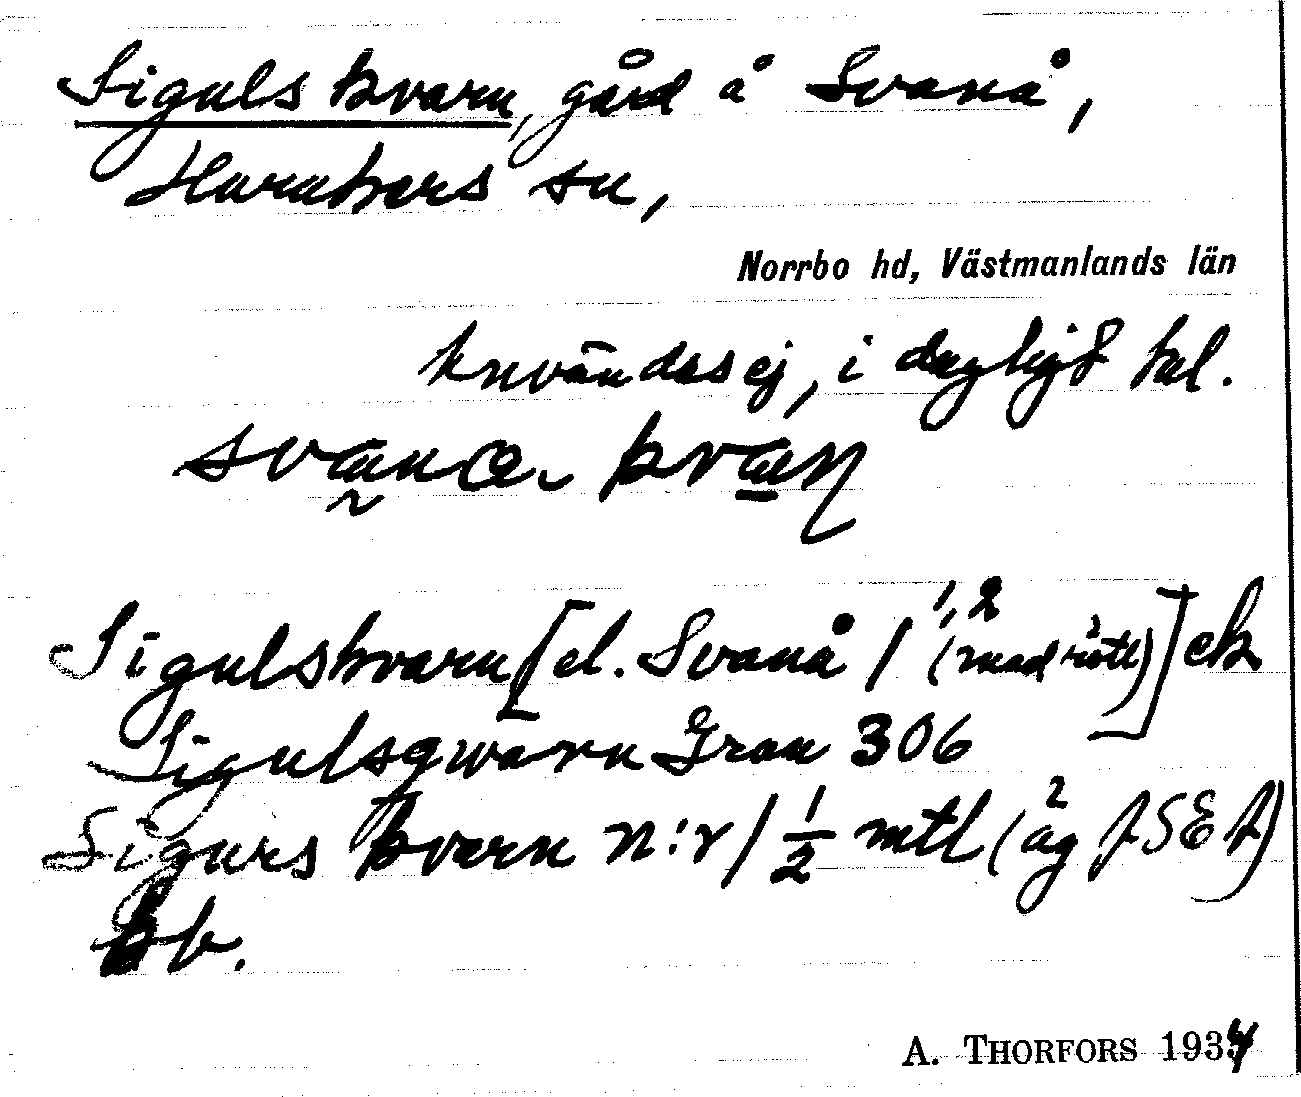 Sigulskvarn, gård å Svanå,
Harakers sn,
Norrbo hd, Västmanlands län
användes ej, i dagligt tal.
Sigulskvarn [el. Svanå 1 1,2 (med rött)] ek
Sigulsqwarn Gran 306
Sigurs kvarn n:r 1 1/2 mtl (äg JSEA)
A. THORFORS 1934